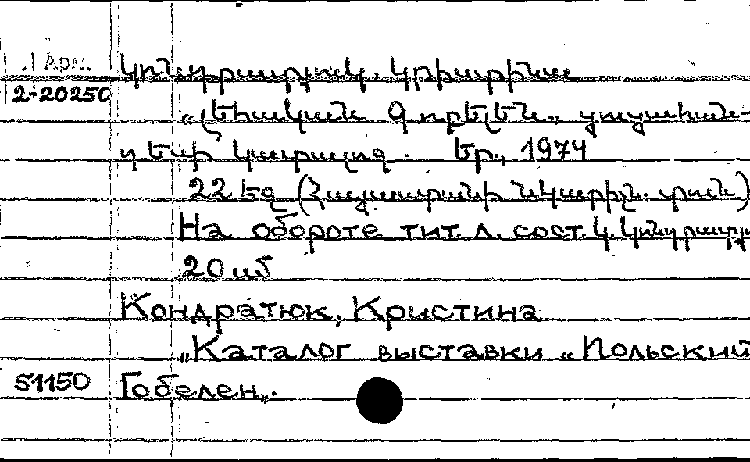 1 Арм.
Կոնդրատյուկ. Կրիստինա
2-20250
„Լեհական Գոբելեն„ ցուցահան-
դեսի կատալոգ. Եր., 1974
22 էջ (Հայաստանի նկարիչ. տուն)
На обороте тит. л. сост. Կ. Կոնդրատյու
20 սմ
Кондратюк, Кристина
„Каталог выставки „Польский
51150 Гобелен„.